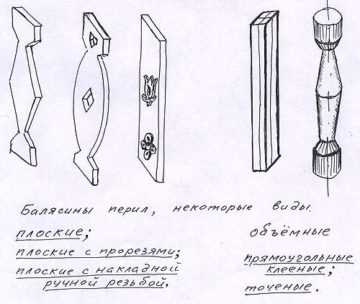 Балясины перил, некоторые виды.
плоские;
плоские с прорезями;
плоские с накладной
ручной резьбой.
объёмные
прямоугольные
клееные;
точеные.